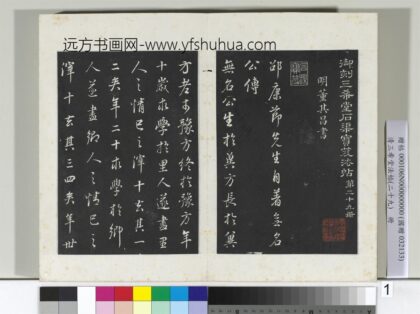 远方书画网-www.yfshuhua.com
御刻三希堂石渠寶笈法帖第二十九冊
明董其昌書
邵康節先生自著無名
公傳
無名公生於冀方長於冀
方老於豫方終於豫方年
十歲求學於里人遂盡里
人之情己之滓十去其一
二矣年二十求學於鄉
人遂盡鄉人之情己之
滓十去其三四矣年卅
1